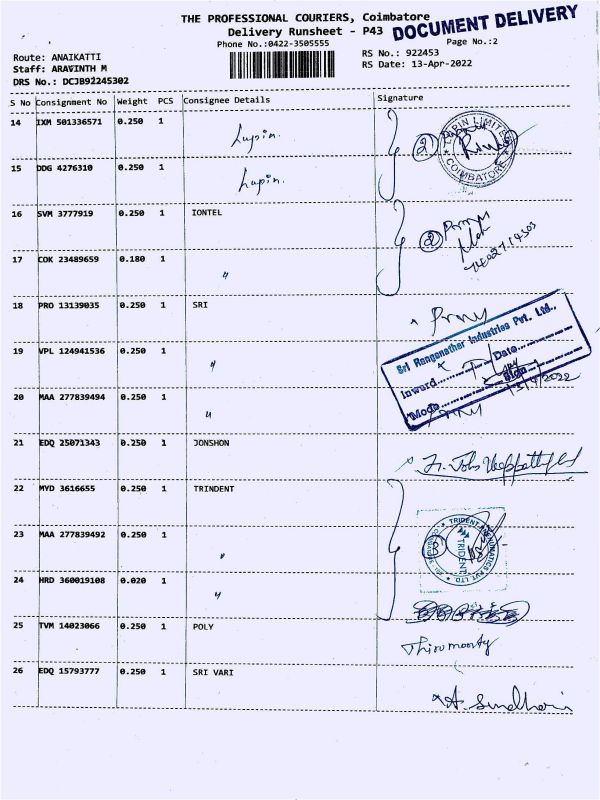 THE PROFESSIONAL COURIERS, Coimbatore
DOCUMENT DELIVERY
Delivery Runsheet - P43
Phone No.:0422-3505555
Page No.:2
Route: ANAIKATTI
RS No.: 922453
Staff: ARAVINTH M
RS Date: 13-Apr-2022
DRS No.: DCJB92245302
S No Consignment No Weight PCS Consignee Details Signature
14 IXM 501336571 0.250 1 Lupin.
2
LUPIN LIMITED
COIMBATORE
15 DDG 4276310 0.250 1 Lupin.
16 SVM 3777919 0.250 1 IONTEL
2
17 COK 23489659 0.180 1 "
18 PRO 13139035 0.250 1 SRI
Sri Ranganathar Industries Pvt. Ltd.,
19 VPL 124941536 0.250 1 "
Inward Date
Sign
20 MAA 277839494 0.250 1 "
Mode
13/4/2022
21 EDQ 25071343 0.250 1 JONSHON
22 MYD 3616655 0.250 1 TRINDENT
TRIDENT PNEUMATICS PVT LTD
23 MAA 277839492 0.250 1 "
TRIDENT
3
24 HRD 360019108 0.020 1 "
25 TVM 14023066 0.250 1 POLY
Thiromoorty
26 EDQ 15793777 0.250 1 SRI VARI